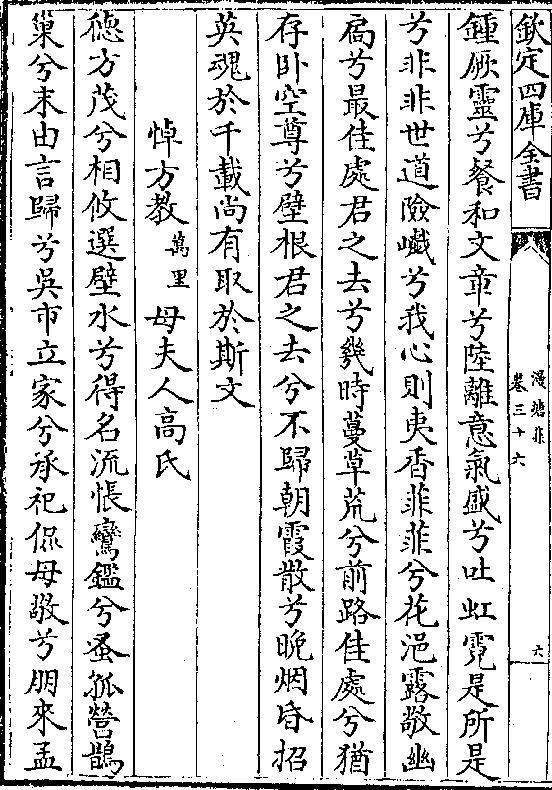 欽定四庫全書
漫塘集
卷三十六
六
鍾厥靈兮餐和文章兮陸離意氣盛兮吐虹霓是所是
兮非非世道險巇兮我心則夷香菲菲兮花浥露敞幽
扄兮最佳處君之去兮幾時蔓草荒兮前路佳處兮猶
存卧空尊兮壁根君之去兮不歸朝霞散兮晚烟昏招
英魂於千載尚有取於斯文
悼方教萬里母夫人高氏
德方茂兮相攸選壁水兮得名流悵鸞鑑兮蚤孤營鵲
巢兮末由言歸兮吳市立家兮承祀侃母敬兮朋來孟